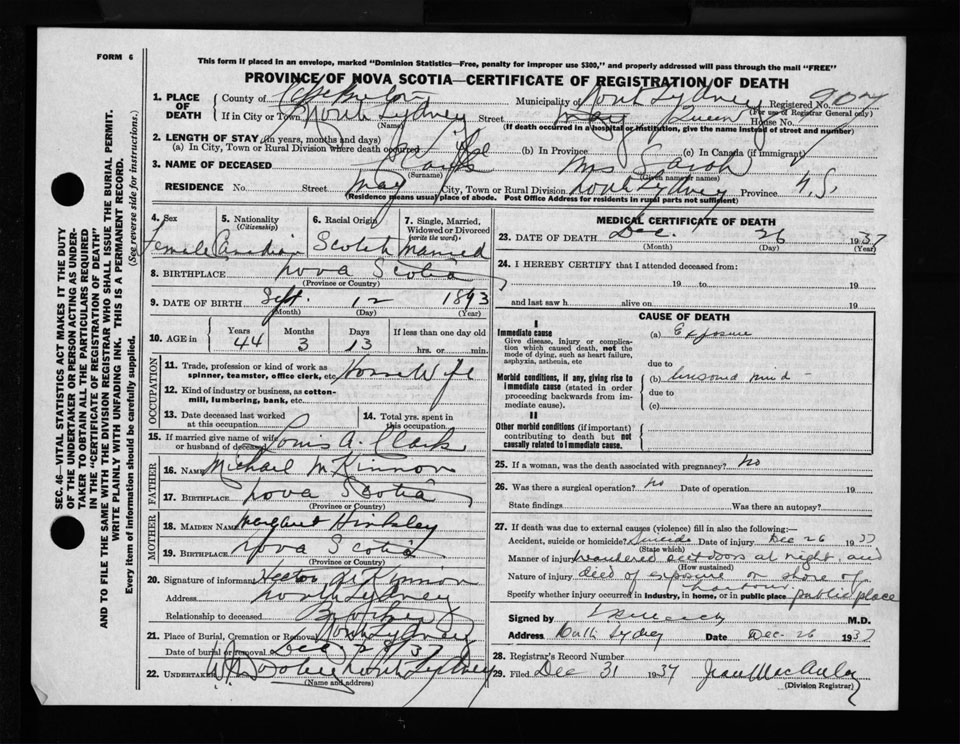 FORM 6
This form if placed in an envelope, marked "Dominion Statistics—Free, penalty for improper use $300," and properly addressed will pass through the mail "FREE"
PROVINCE OF NOVA SCOTIA—CERTIFICATE OF REGISTRATION OF DEATH
1. PLACE OF DEATH County of Cape Breton Municipality of North Sydney Registered No. 907
(For use of Registrar General only)
If in City or Town North Sydney Street Queen House No.
(Name) (If death occurred in a hospital or institution, give the name instead of street and number)
2. LENGTH OF STAY (in years, months and days)
(a) In City, Town or Rural Division where death occurred life (b) In Province (c) In Canada (if immigrant)
3. NAME OF DECEASED Clark Mrs Sarah
(Surname) (Given name or names)
RESIDENCE No. Street May City, Town or Rural Division North Sydney Province N.S.
(Residence means usual place of abode. Post Office Address for residents in rural parts not sufficient)
4. Sex Female
5. Nationality (Citizenship) Canadian
6. Racial Origin Scotch
7. Single, Married, Widowed or Divorced (write the word) Married
8. BIRTHPLACE Nova Scotia
(Province or Country)
9. DATE OF BIRTH Sept. 12 1893
(Month) (Day) (Year)
10. AGE in Years 44 Months 3 Days 13 If less than one day old hrs. or min.
OCCUPATION
11. Trade, profession or kind of work as spinner, teamster, office clerk, etc. House Wife
12. Kind of industry or business, as cotton-mill, lumbering, bank, etc.
13. Date deceased last worked at this occupation
14. Total yrs. spent in this occupation
15. If married give name of wife or husband of deceased Louis A. Clark
FATHER
16. NAME Michael McKinnon
17. BIRTHPLACE Nova Scotia
(Province or Country)
MOTHER
18. MAIDEN NAME Margaret Hinkley
19. BIRTHPLACE Nova Scotia
(Province or Country)
20. Signature of informant Hector McKinnon
Address North Sydney
Relationship to deceased Brother
21. Place of Burial, Cremation or Removal North Sydney
Date of burial or removal Dec 28/37
22. UNDERTAKER North Sydney
(Name and address)
MEDICAL CERTIFICATE OF DEATH
23. DATE OF DEATH Dec. 26 1937
(Month) (Day) (Year)
24. I HEREBY CERTIFY that I attended deceased from:
19 to 19
and last saw h alive on 19
CAUSE OF DEATH
I
Immediate cause
Give disease, injury or complication which caused death, not the mode of dying, such as heart failure, asphyxia, asthenia, etc
(a) Exposure
due to
Morbid conditions, if any, giving rise to immediate cause (stated in order proceeding backwards from immediate cause).
(b) unsound mind
due to
(c)
II
Other morbid conditions (if important) contributing to death but not causally related to immediate cause.
25. If a woman, was the death associated with pregnancy? no
26. Was there a surgical operation? no Date of operation 19
State findings Was there an autopsy?
27. If death was due to external causes (violence) fill in also the following:—
Accident, suicide or homicide? Suicide Date of injury Dec 26 1937
(State which)
Manner of injury wandered outdoors at night and
(How sustained)
Nature of injury died of exposure on shore of
harbour
Specify whether injury occurred in industry, in home, or in public place public place
Signed by M.D.
Address North Sydney Date Dec 26 1937
28. Registrar's Record Number
29. Filed Dec 31 1937 Jean MacAulay
(Division Registrar)
SEC. 46—VITAL STATISTICS ACT MAKES IT THE DUTY
OF THE UNDERTAKER OR PERSON ACTING AS UNDER-
TAKER TO OBTAIN ALL THE PARTICULARS REQUIRED
IN THE "CERTIFICATE OF REGISTRATION OF DEATH"
AND TO FILE THE SAME WITH THE DIVISION REGISTRAR WHO SHALL ISSUE THE BURIAL PERMIT.
WRITE PLAINLY WITH UNFADING INK. THIS IS A PERMANENT RECORD.
Every item of information should be carefully supplied. (See reverse side for instructions.)